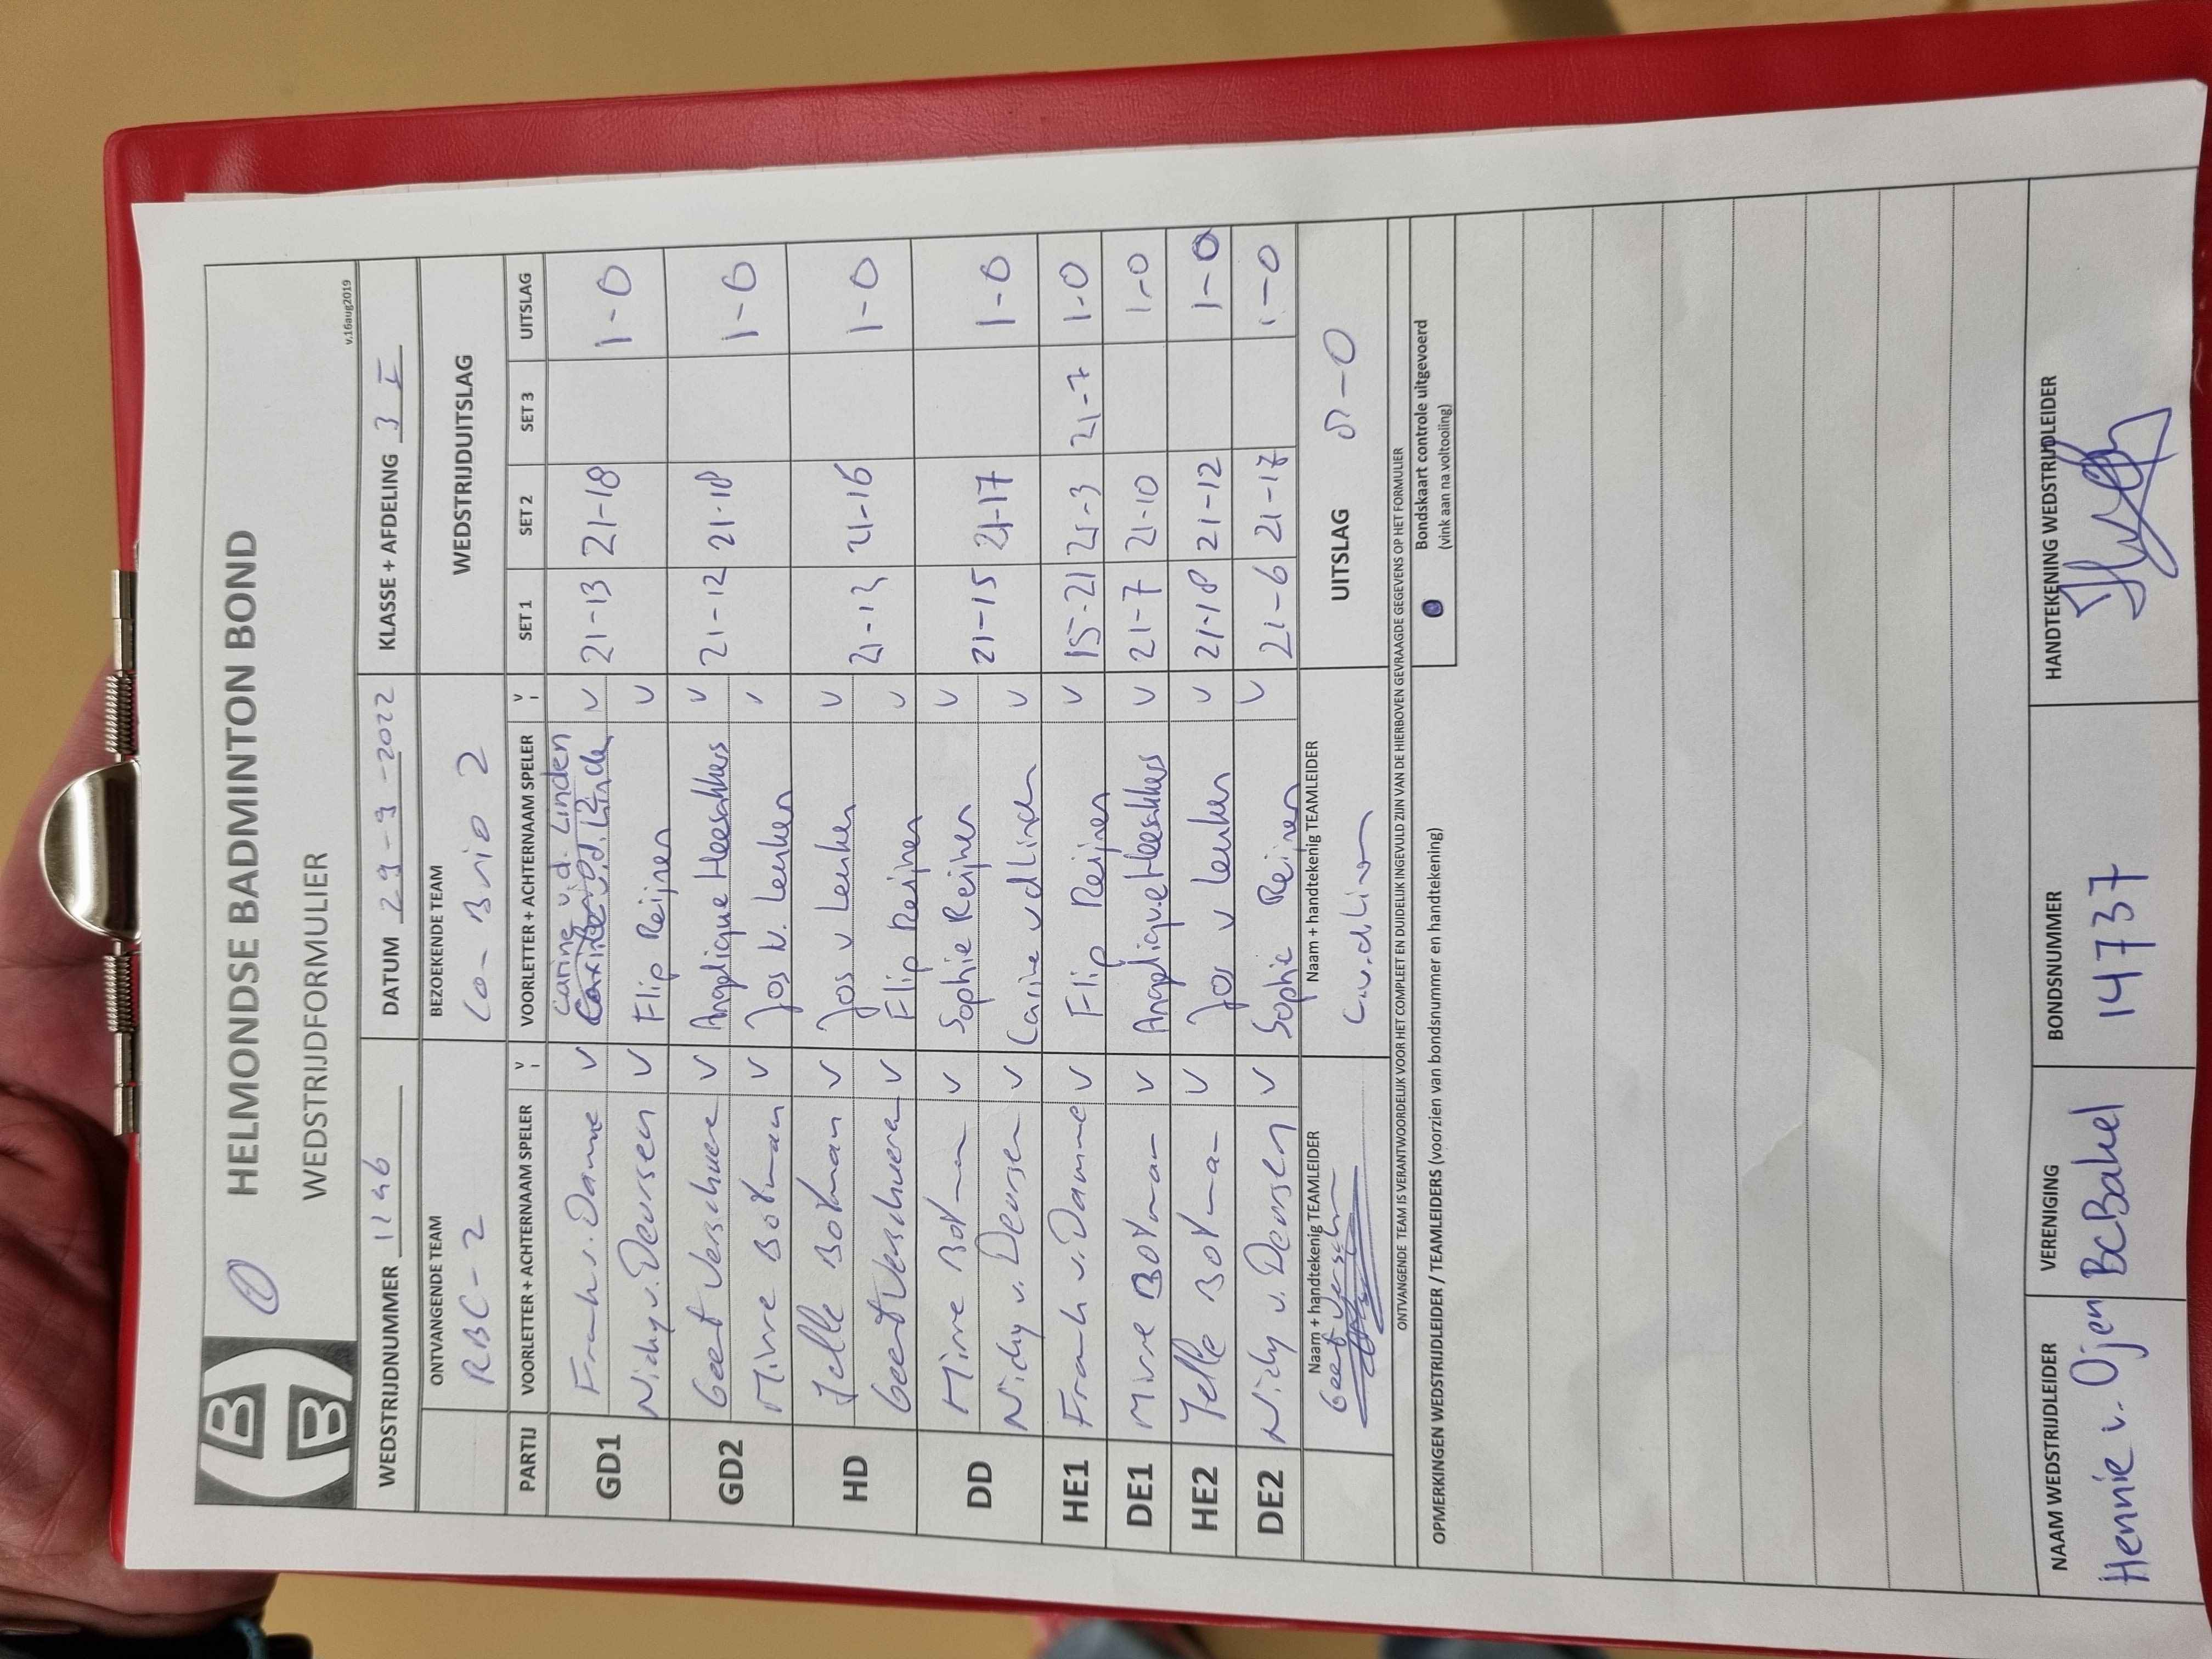 HBB
HELMONDSE BADMINTON BOND
WEDSTRIJDFORMULIER
v.16aug2019
WEDSTRIJDNUMMER 1146 DATUM 29-9-2022 KLASSE + AFDELING 3 I
ONTVANGENDE TEAM BEZOEKENDE TEAM WEDSTRIJDUITSLAG
RBC-2 Co-Brio 2
PARTIJ VOORLETTER + ACHTERNAAM SPELER V VOORLETTER + ACHTERNAAM SPELER V SET 1 SET 2 SET 3 UITSLAG
GD1 Frank v. Damme V Carine v.d. Linden V 21-13 21-18 1-0
Nicky v. Deursen V Flip Reijnen V
GD2 Geert Verschuere V Angelique Heesakkers V 21-12 21-18 1-0
Mirre Botman V Jos v. Leuken V
HD Jelle Botman V Jos v Leuken V 21-13 21-16 1-0
Geert Verschueren V Flip Reijnen V
DD Mirre Botman V Sophie Reijnen V 21-15 21-17 1-0
Nicky v. Deursen V Carine vd Linden V
HE1 Frank v. Damme V Flip Reijnen V 15-21 21-3 21-7 1-0
DE1 Mirre Botman V Angelique Heesakkers V 21-7 21-10 1-0
HE2 Jelle Botman V Jos v Leuken V 21-18 21-12 1-0
DE2 Nicky v. Deursen V Sophie Reijnen V 21-6 21-17 1-0
Naam + handtekenig TEAMLEIDER Naam + handtekenig TEAMLEIDER UITSLAG 8-0
Geert
ONTVANGENDE TEAM IS VERANTWOORDELIJK VOOR HET COMPLEET EN DUIDELIJK INGEVULD ZIJN VAN DE HIERBOVEN GEVRAAGDE GEGEVENS OP HET FORMULIER
OPMERKINGEN WEDSTRIJDLEIDER / TEAMLEIDERS (voorzien van bondsnummer en handtekening) Bondskaart controle uitgevoerd
(vink aan na voltooling)
NAAM WEDSTRIJDLEIDER VERENIGING BONDSNUMMER HANDTEKENING WEDSTRIJDLEIDER
Hennie v. Ojen BC Bakel 14737